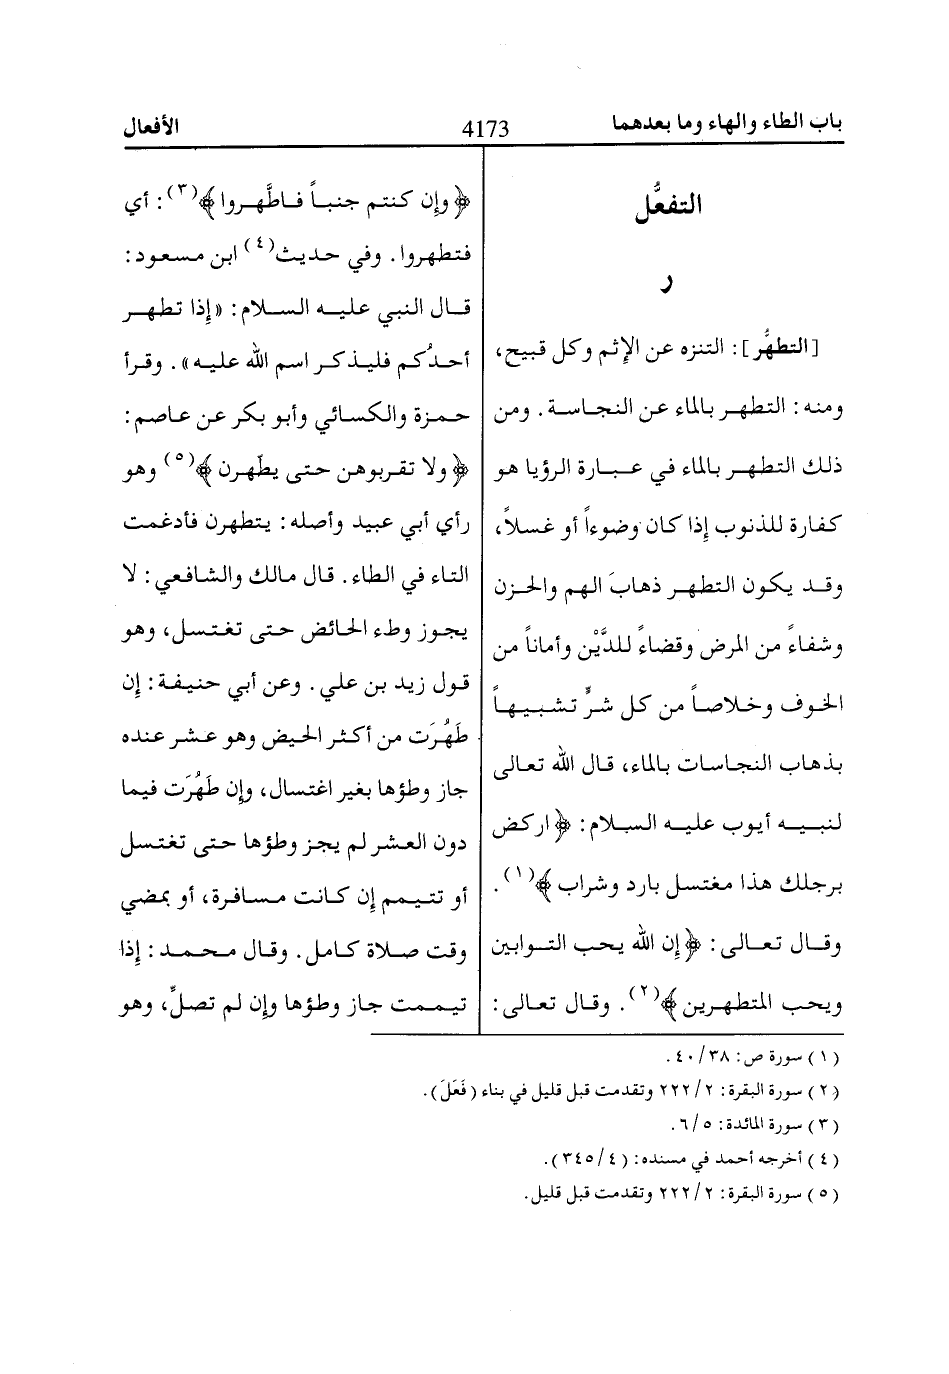 باب الطاء والهاء وما بعدهما 4173 الأفعال
التفعُّل
ر
[التطهُّر]: التنزه عن الإثم وكل قبيح،
ومنه: التطهر بالماء عن النجاسة. ومن
ذلك التطهر بالماء في عبارة الرؤيا هو
كفارة للذنوب إذا كان وضوءاً أو غسلاً،
وقد يكون التطهر ذهابَ الهم والحزن
وشفاءً من المرض وقضاءً للدَّيْن وأماناً من
الخوف وخلاصاً من كل شرٍّ تشبيهاً
بذهاب النجاسات بالماء، قال الله تعالى
لنبيه أيوب عليه السلام: ﴿اركض
برجلك هذا مغتسل بارد وشراب﴾(١).
وقال تعالى: ﴿إن الله يحب التوابين
ويحب المتطهرين﴾(٢). وقال تعالى:
﴿وإن كنتم جنباً فاطَّهروا﴾(٣): أي
فتطهروا. وفي حديث(٤) ابن مسعود:
قال النبي عليه السلام: «إذا تطهر
أحدُكم فليذكر اسم الله عليه». وقرأ
حمزة والكسائي وأبو بكر عن عاصم:
﴿ولا تقربوهن حتى يطّهرن﴾(٥) وهو
رأي أبي عبيد وأصله: يتطهرن فأدغمت
التاء في الطاء. قال مالك والشافعي: لا
يجوز وطء الحائض حتى تغتسل، وهو
قول زيد بن علي. وعن أبي حنيفة: إن
طَهُرَت من أكثر الحيض وهو عشر عنده
جاز وطؤها بغير اغتسال، وإن طَهُرَت فيما
دون العشر لم يجز وطؤها حتى تغتسل
أو تتيمم إن كانت مسافرة، أو بمضي
وقت صلاة كامل. وقال محمد: إذا
تيممت جاز وطؤها وإن لم تصلِّ، وهو
(١) سورة ص: ٣٨/٤٠.
(٢) سورة البقرة: ٢/٢٢٢ وتقدمت قبل قليل في بناء (فَعَلَ).
(٣) سورة المائدة: ٥/٦.
(٤) أخرجه أحمد في مسنده: (٤/٣٤٥).
(٥) سورة البقرة: ٢/٢٢٢ وتقدمت قبل قليل.